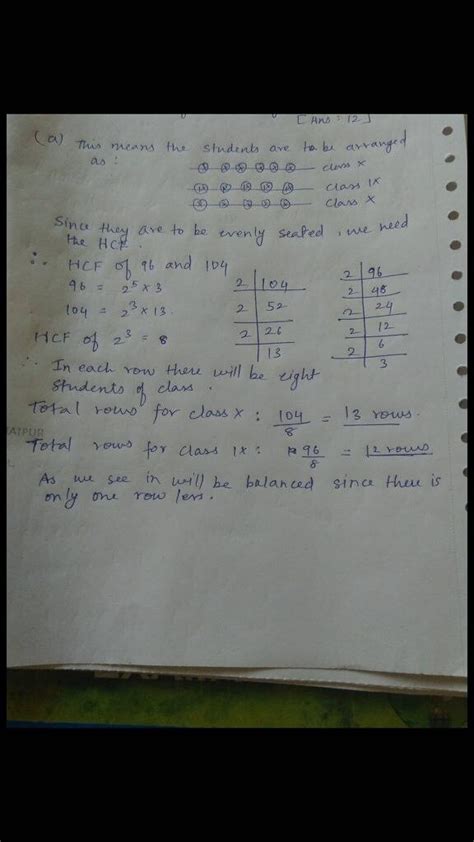 [Ans : 12]
(a) This means the students are to be arranged
as :
class X
class IX
class X
Since they are to be evenly seated, we need
the HCF.
∴ HCF of 96 and 104
96 = 2⁵ × 3
104 = 2³ × 13
HCF of 2³ = 8
2 | 104
2 | 52
2 | 26
13
2 | 96
2 | 48
2 | 24
2 | 12
2 | 6
3
∴ In each row there will be eight
students of class.
Total rows for class X : 104/8 = 13 rows.
Total rows for class IX : 96/8 = 12 rows
As we see in will be balanced since there is
only one row less.